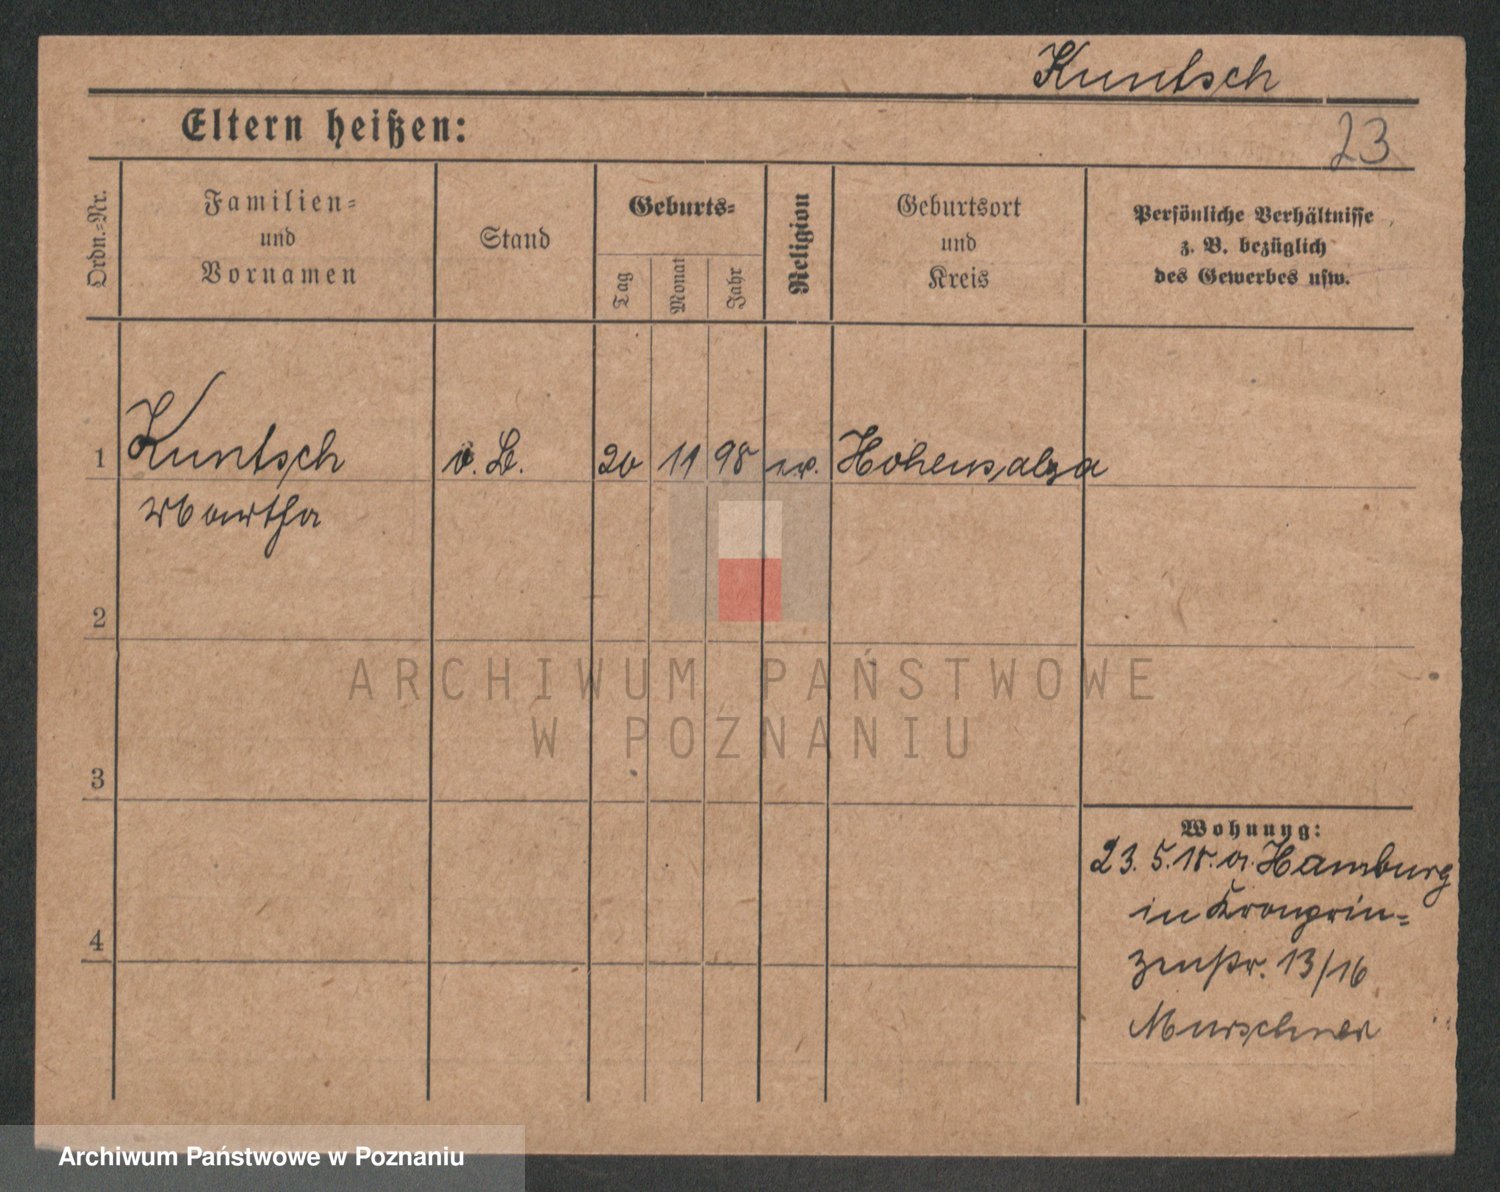 Kuntsch
Eltern heißen:
23
Ordn.-Nr.
Familien-
und
Vornamen
Stand
Geburts-
Tag
Monat
Jahr
Religion
Geburtsort
und
Kreis
Persönliche Verhältnisse
z. B. bezüglich
des Gewerbes usw.
1
Kuntsch
o. B.
20
11
98
ev.
Hohensalza
Martha
2
ARCHIWUM PAŃSTWOWE
W POZNANIU
3
Wohnung:
23. 5. 18. a. Hamburg
in Kronprin-
4
zenstr. 13/16
Murschner
Archiwum Państwowe w Poznaniu